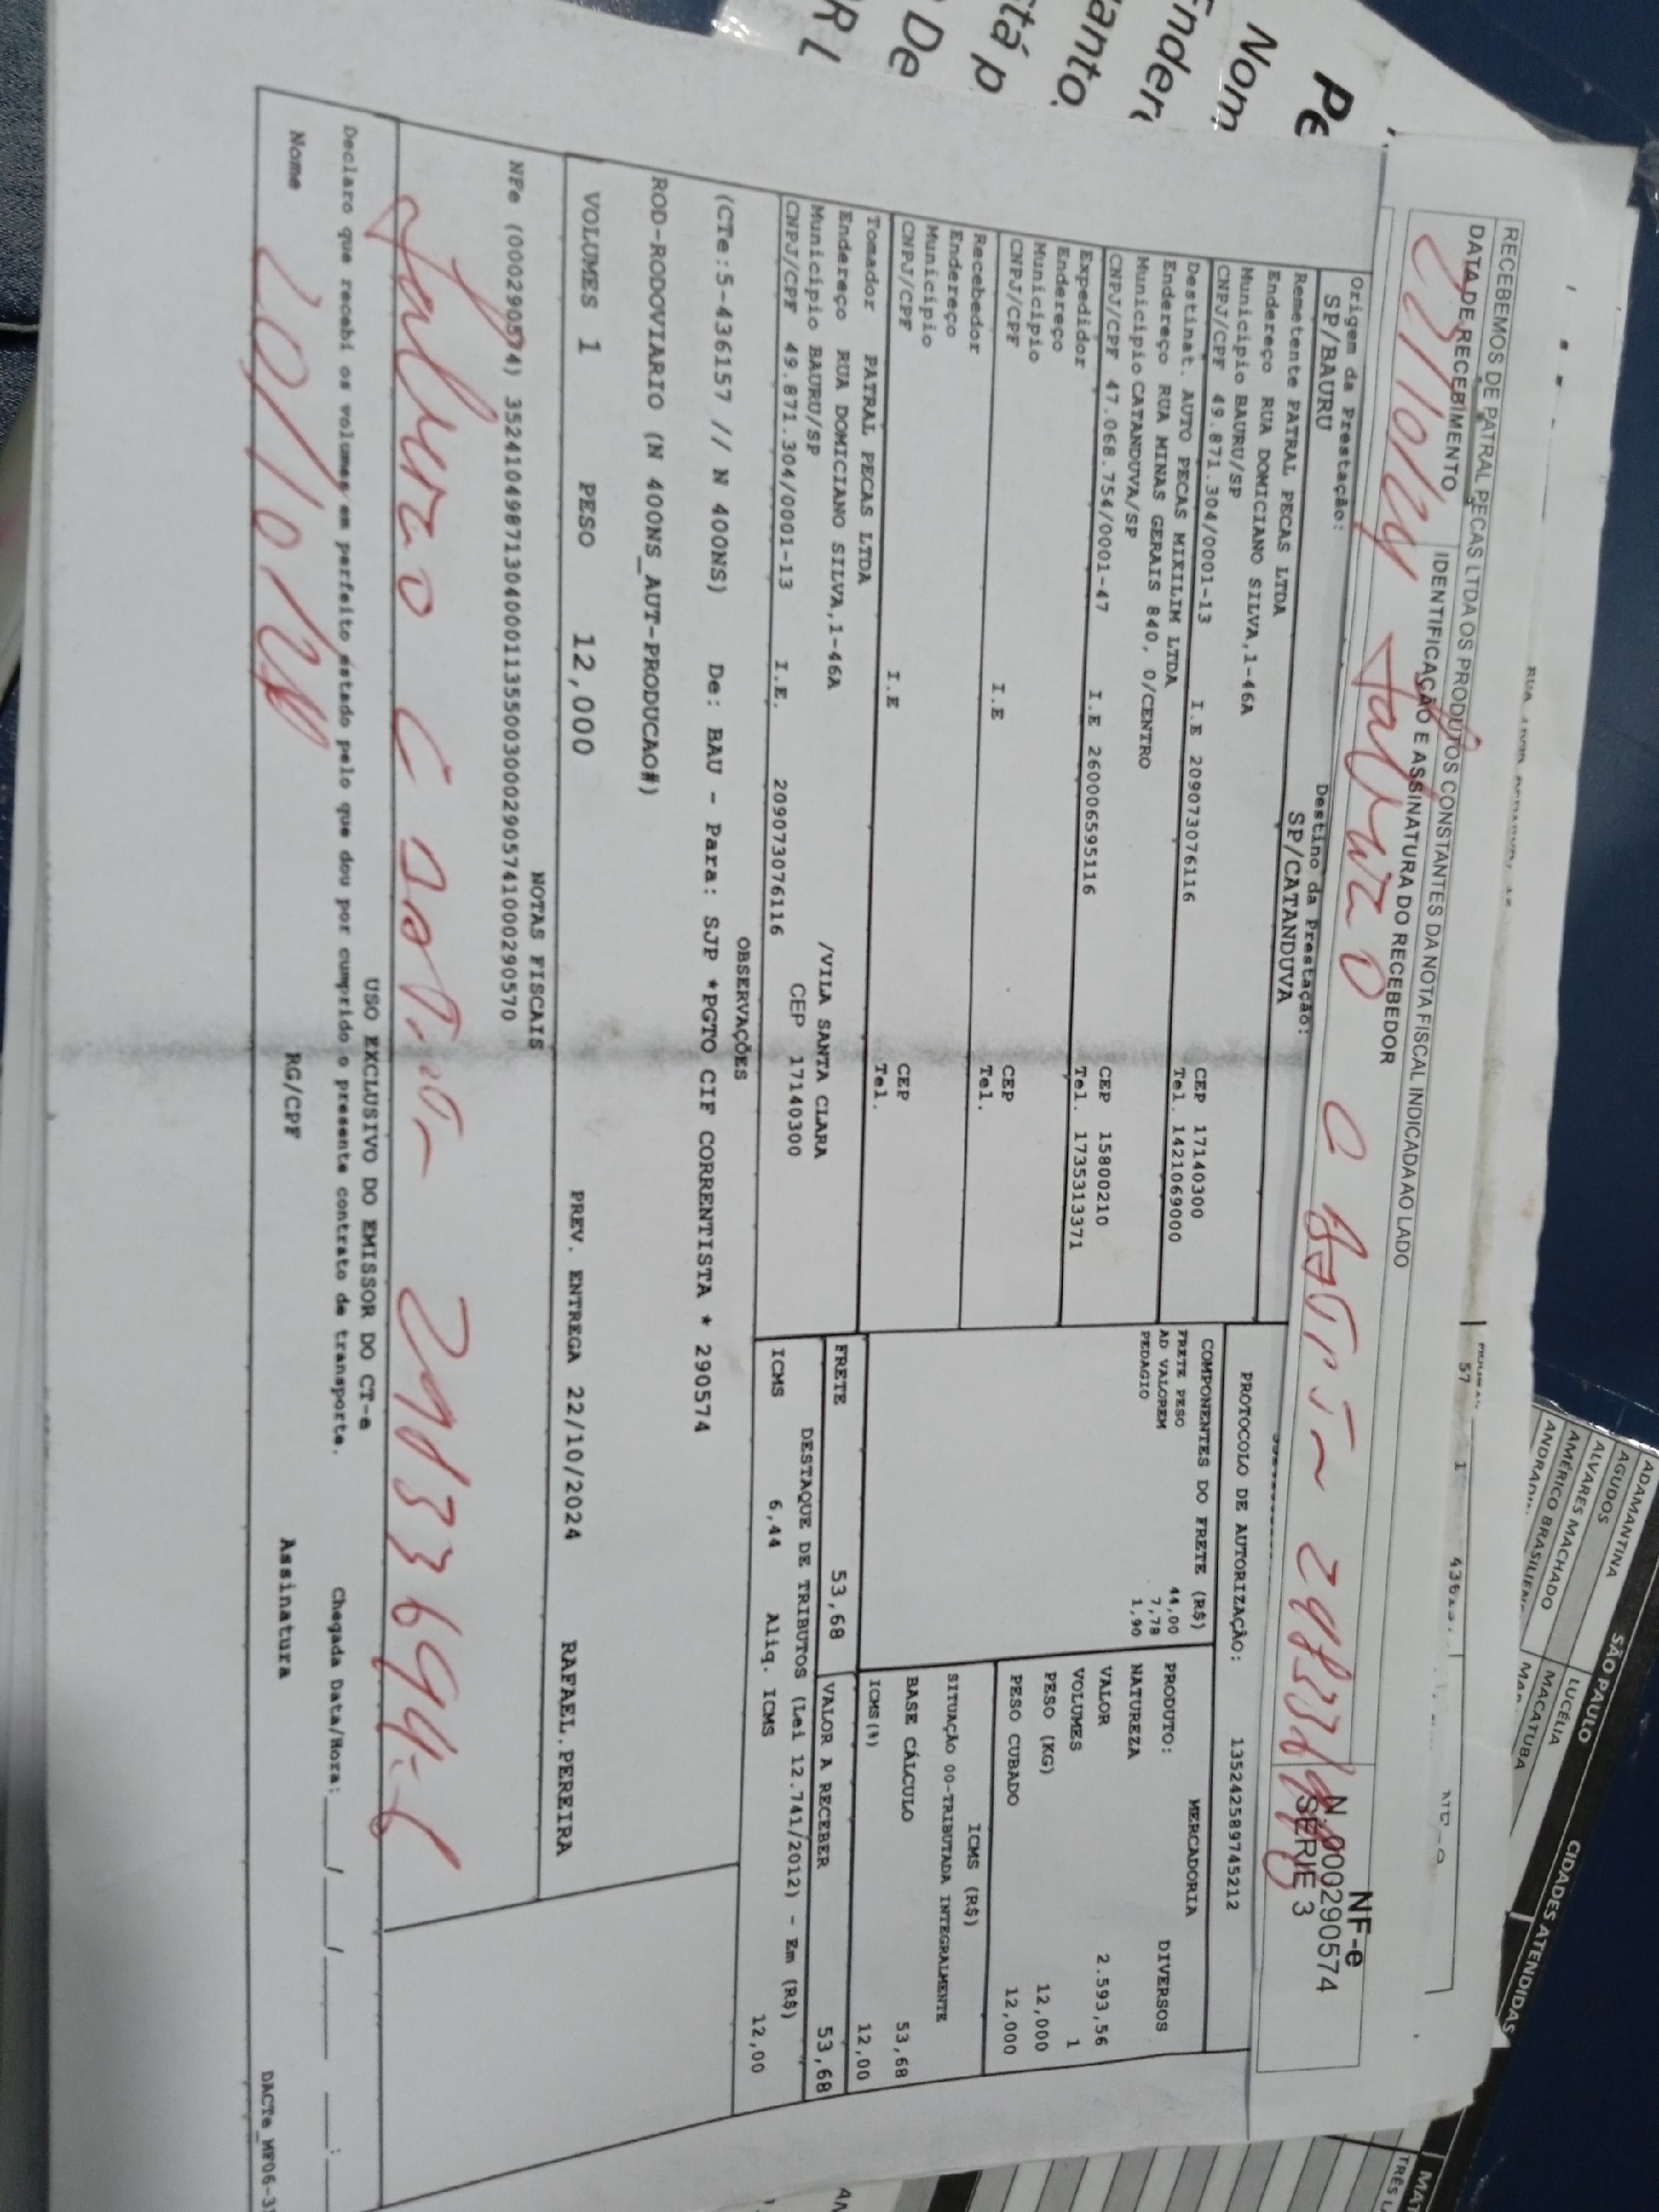 PE
Nom
Ender
anto.
tá p
De
R L
RECEBEMOS DE PATRAL PECAS LTDA OS PRODUTOS CONSTANTES DA NOTA FISCAL INDICADA AO LADO
DATA DE RECEBIMENTO
IDENTIFICAÇÃO E ASSINATURA DO RECEBEDOR
NF-e
N. 000290574
SÉRIE 3
Origem da Prestação:
SP/BAURU
Destino da Prestação:
SP/CATANDUVA
PROTOCOLO DE AUTORIZAÇÃO: 135242589745212
Remetente PATRAL PECAS LTDA
Endereço RUA DOMICIANO SILVA,1-46A
Município BAURU/SP CEP 17140300
CNPJ/CPF 49.871.304/0001-13 I.E 209073076116 Tel. 1421069000
Destinat. AUTO PECAS MIXILIM LTDA
Endereço RUA MINAS GERAIS 840, 0/CENTRO
Município CATANDUVA/SP CEP 15800210
CNPJ/CPF 47.068.754/0001-47 I.E 260006595116 Tel. 1735313371
Expedidor
Endereço
Município CEP
CNPJ/CPF I.E Tel.
Recebedor
Endereço
Município CEP
CNPJ/CPF I.E Tel.
Tomador PATRAL PECAS LTDA
Endereço RUA DOMICIANO SILVA,1-46A /VILA SANTA CLARA
Município BAURU/SP CEP 17140300
CNPJ/CPF 49.871.304/0001-13 I.E. 209073076116
COMPONENTES DO FRETE (R$)
FRETE PESO 44,00
AD VALOREM 7,78
PEDAGIO 1,90
MERCADORIA
PRODUTO: DIVERSOS
NATUREZA
VALOR 2.593,56
VOLUMES 1
PESO (KG) 12,000
PESO CUBADO 12,000
ICMS (R$)
SITUAÇÃO 00-TRIBUTADA INTEGRALMENTE
BASE CÁLCULO 53,68
ICMS(%) 12,00
FRETE 53,68
VALOR A RECEBER 53,68
DESTAQUE DE TRIBUTOS (Lei 12.741/2012) - Em (R$)
ICMS 6,44 Aliq. ICMS 12,00
OBSERVAÇÕES
(CTe:5-436157 // N 400NS) De: BAU - Para: SJP *PGTO CIF CORRENTISTA * 290574
ROD-RODOVIARIO (N 400NS_AUT-PRODUCAO#)
VOLUMES 1 PESO 12,000 PREV. ENTREGA 22/10/2024 RAFAEL.PEREIRA
NOTAS FISCAIS
NFe (000290574) 35241049871304000113550030002905741000290570
USO EXCLUSIVO DO EMISSOR DO CT-e
Declaro que recebi os volumes em perfeito estado pelo que dou por cumprido o presente contrato de transporte. Chegada Data/Hora: ___/___/_____ ___:___
Nome RG/CPF Assinatura
DACTe_MF06-3
57 1
SÃO PAULO
CIDADES ATENDIDAS
ADAMANTINA
AGUDOS
ALVARES MACHADO
AMÉRICO BRASILIENS
LUCÉLIA
MACATUBA
MAT
TRÊS L